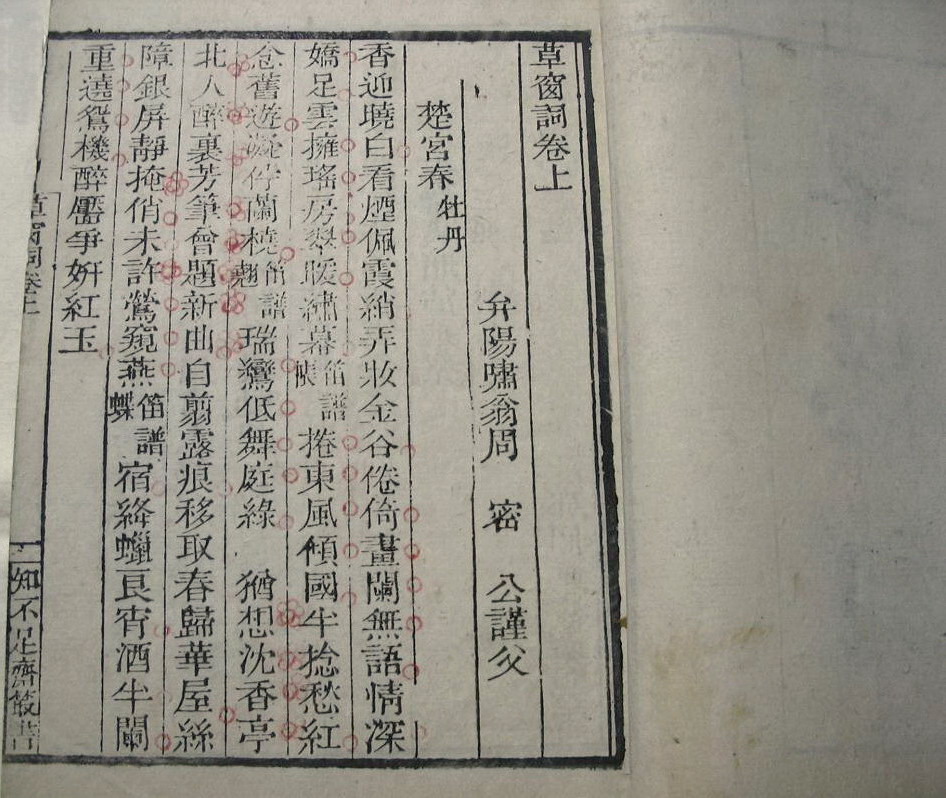 草窗詞卷上
弁陽嘯翁周 密 公謹父
楚宮春 牡丹
香迎曉白看煙佩霞綃弄妝金谷倦倚畫闌無語情深
嬌足雲擁瑤房翠暖繡幕 笛譜帳 捲東風傾國半捻愁紅
念舊遊凝佇蘭橈 笛譜翹 瑞鸞低舞庭綠 猶想沈香亭
北人醉裏芳筆曾題新曲自翦露痕移取春歸華屋絲
障銀屏靜掩俏未許鶯窺燕 笛譜蝶 宿絳蠟良宵酒半闌
重遶鴛機醉靨爭妍紅玉
草窗詞卷上
一
知不足齋叢書